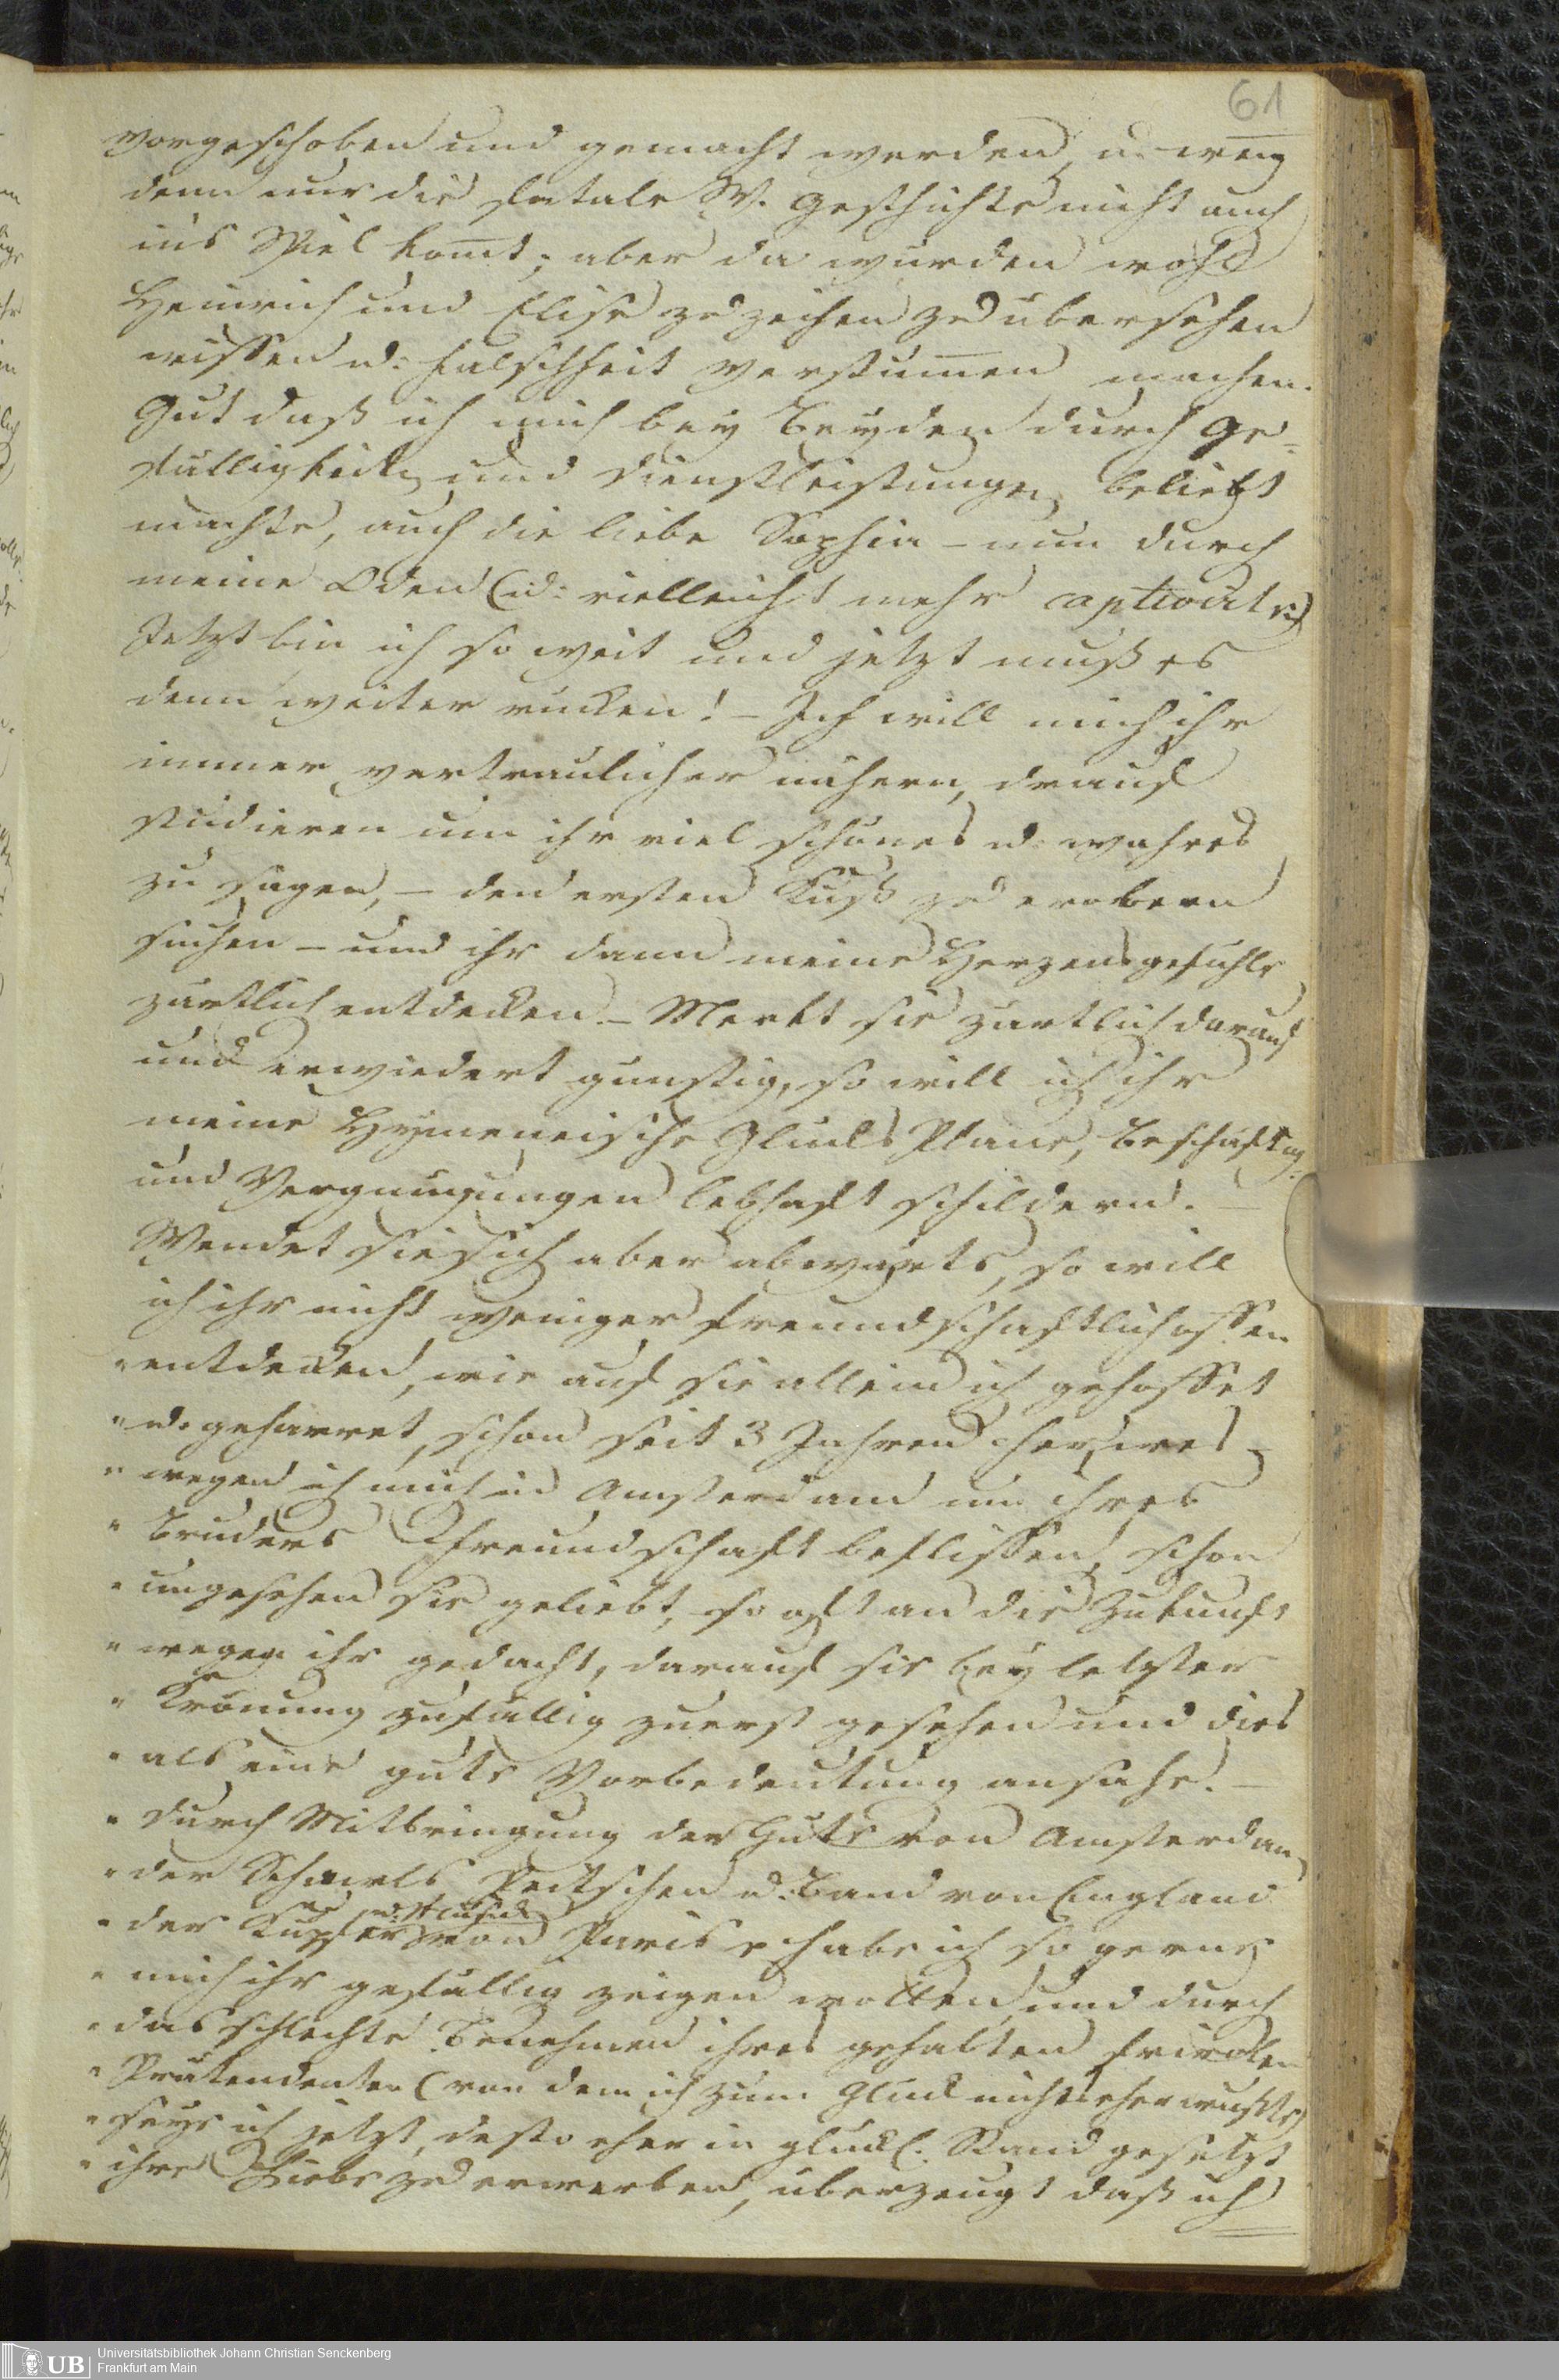 61
vorgeschoben und gemacht werden, u: wenn
dann nur die fatale W. Geschichte nicht auch
ins Spiel komt; aber da wurden wohl
Heinrich und Elise zu ziehen zu übersehen
wissen u: Falschheit verstummen machen.
Gut daß ich mich bey Beyden durch Ge=
fälligkeiten und Dienstleistungen beliebt
machte, auch die liebe Sophia – nun durch
meine Oden (u: vielleicht mehr captivirte)
Jetzt bin ich so weit und jetzt muß es
denn weiter rücken! – Ich will mich ihr
immer vertraulicher nähern, drauf
studieren um ihr viel schönes u: wahres
zu sagen, – den ersten Kuß zu erobern
suchen – und ihr dann meine Herzensgefühle
zärtlich entdecken. – Merkt sie zärtlich darauf
und erwiedert günstig, so will ich ihr
meine Hymeneische Glücks Plane, Beschäftig:
und Vergnügungen lebhaft schildern. –
Wendet sie sich aber abwärts, so will
ich ihr nicht weniger freundschaftlich offen
"entdecken, wie auf sie allein ich gehoffet
"u: geharret, schon seit 3 Jahren her, wes=
"wegen ich mich in Amsterdam um ihres
"Bruders Freundschaft beflissen, schon
"ungesehen sie geliebt, so oft an die Zukunft
"wegen ihr gedacht, darauf sie bey letzter
"Krönung zufällig zuerst gesehen und dies
"als eine gute Vorbedeutung ansahe. –
"Durch Mitbringung der Hüte von Amsterdam,
"der Schawls Peitschen u: Band von England
u: Musick
"der Kupfer von Paris p habe ich so gerne
"mich ihr gefällig zeigen wollen, und durch
"das schlechte Benehmen ihres gehabten
"Prätendenten (von dem ich zum Glück nichts eher wußte)
"seye ich jetzt, desto eher in glückl. Stand gesetzt
"ihre Liebe zu erwerben, überzeugt daß ich
Universitätsbibliothek Johann Christian Senckenberg
Frankfurt am Main
UB